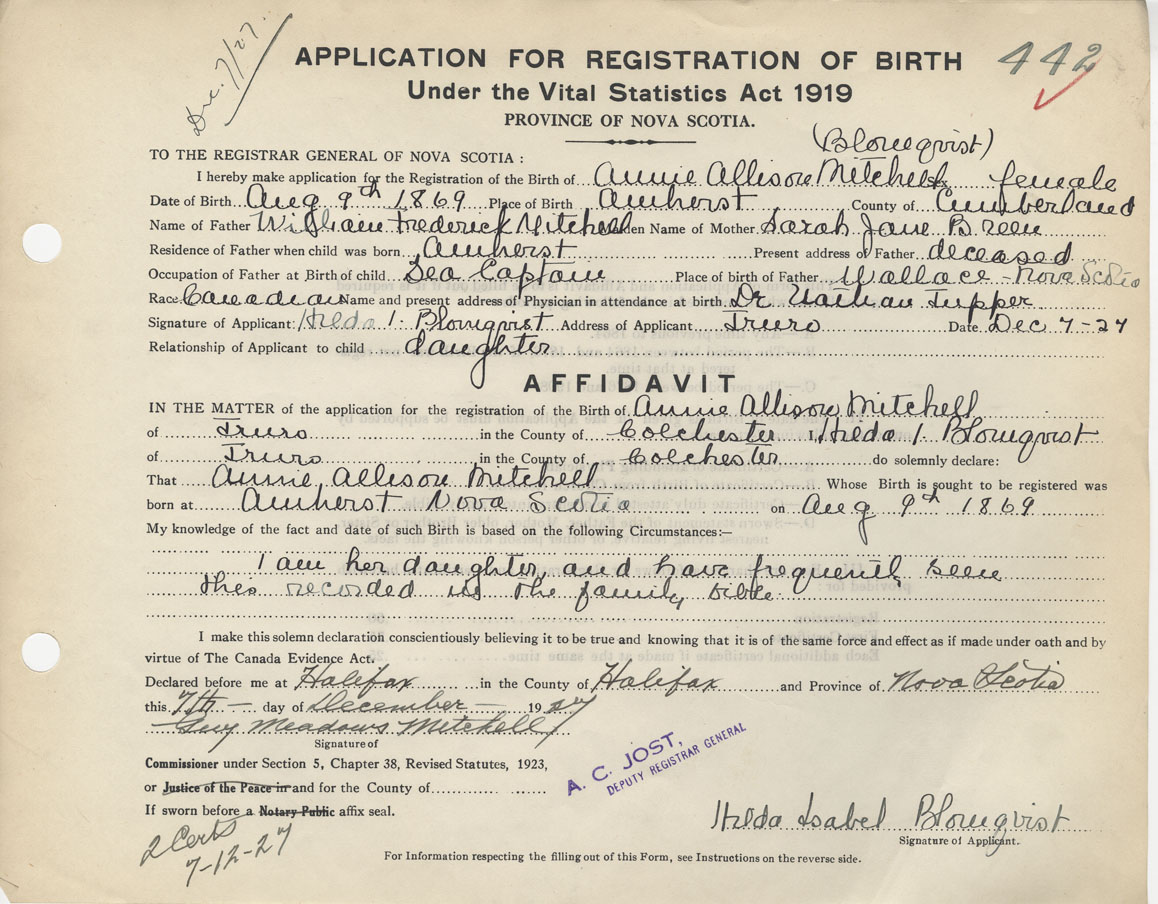 Dec. 7/27.
APPLICATION FOR REGISTRATION OF BIRTH
442
Under the Vital Statistics Act 1919
PROVINCE OF NOVA SCOTIA.
(Blomqvist)
TO THE REGISTRAR GENERAL OF NOVA SCOTIA :
I hereby make application for the Registration of the Birth of Annie Allison Mitchell female
Date of Birth Aug 9th 1869 Place of Birth Amherst County of Cumberland
Name of Father William Frederick Mitchell en Name of Mother Sarah Jane Breen
Residence of Father when child was born Amherst Present address of Father deceased
Occupation of Father at Birth of child Sea Captain Place of birth of Father Wallace - Nova Scotia
Race Canadian Name and present address of Physician in attendance at birth Dr. Nathan Tupper
Signature of Applicant: Hilda I. Blomqvist Address of Applicant Truro Date Dec 7-27
Relationship of Applicant to child daughter
AFFIDAVIT
IN THE MATTER of the application for the registration of the Birth of Annie Allison Mitchell
of Truro in the County of Colchester I, Hilda I. Blomqvist
of Truro in the County of Colchester do solemnly declare:
That Annie Allison Mitchell Whose Birth is sought to be registered was
born at Amherst Nova Scotia on Aug 9th 1869
My knowledge of the fact and date of such Birth is based on the following Circumstances:—
I am her daughter, and have frequently seen
this recorded in the family bible.
I make this solemn declaration conscientiously believing it to be true and knowing that it is of the same force and effect as if made under oath and by
virtue of The Canada Evidence Act.
Declared before me at Halifax in the County of Halifax and Province of Nova Scotia
this 7th — day of December — 1927
Guy Meadows Mitchell
Signature of
Commissioner under Section 5, Chapter 38, Revised Statutes, 1923,
or Justice of the Peace in and for the County of
If sworn before a Notary Public affix seal.
A. C. JOST,
DEPUTY REGISTRAR GENERAL
Hilda Isabel Blomqvist
Signature of Applicant.
2 Certs
7-12-27
For Information respecting the filling out of this Form, see Instructions on the reverse side.